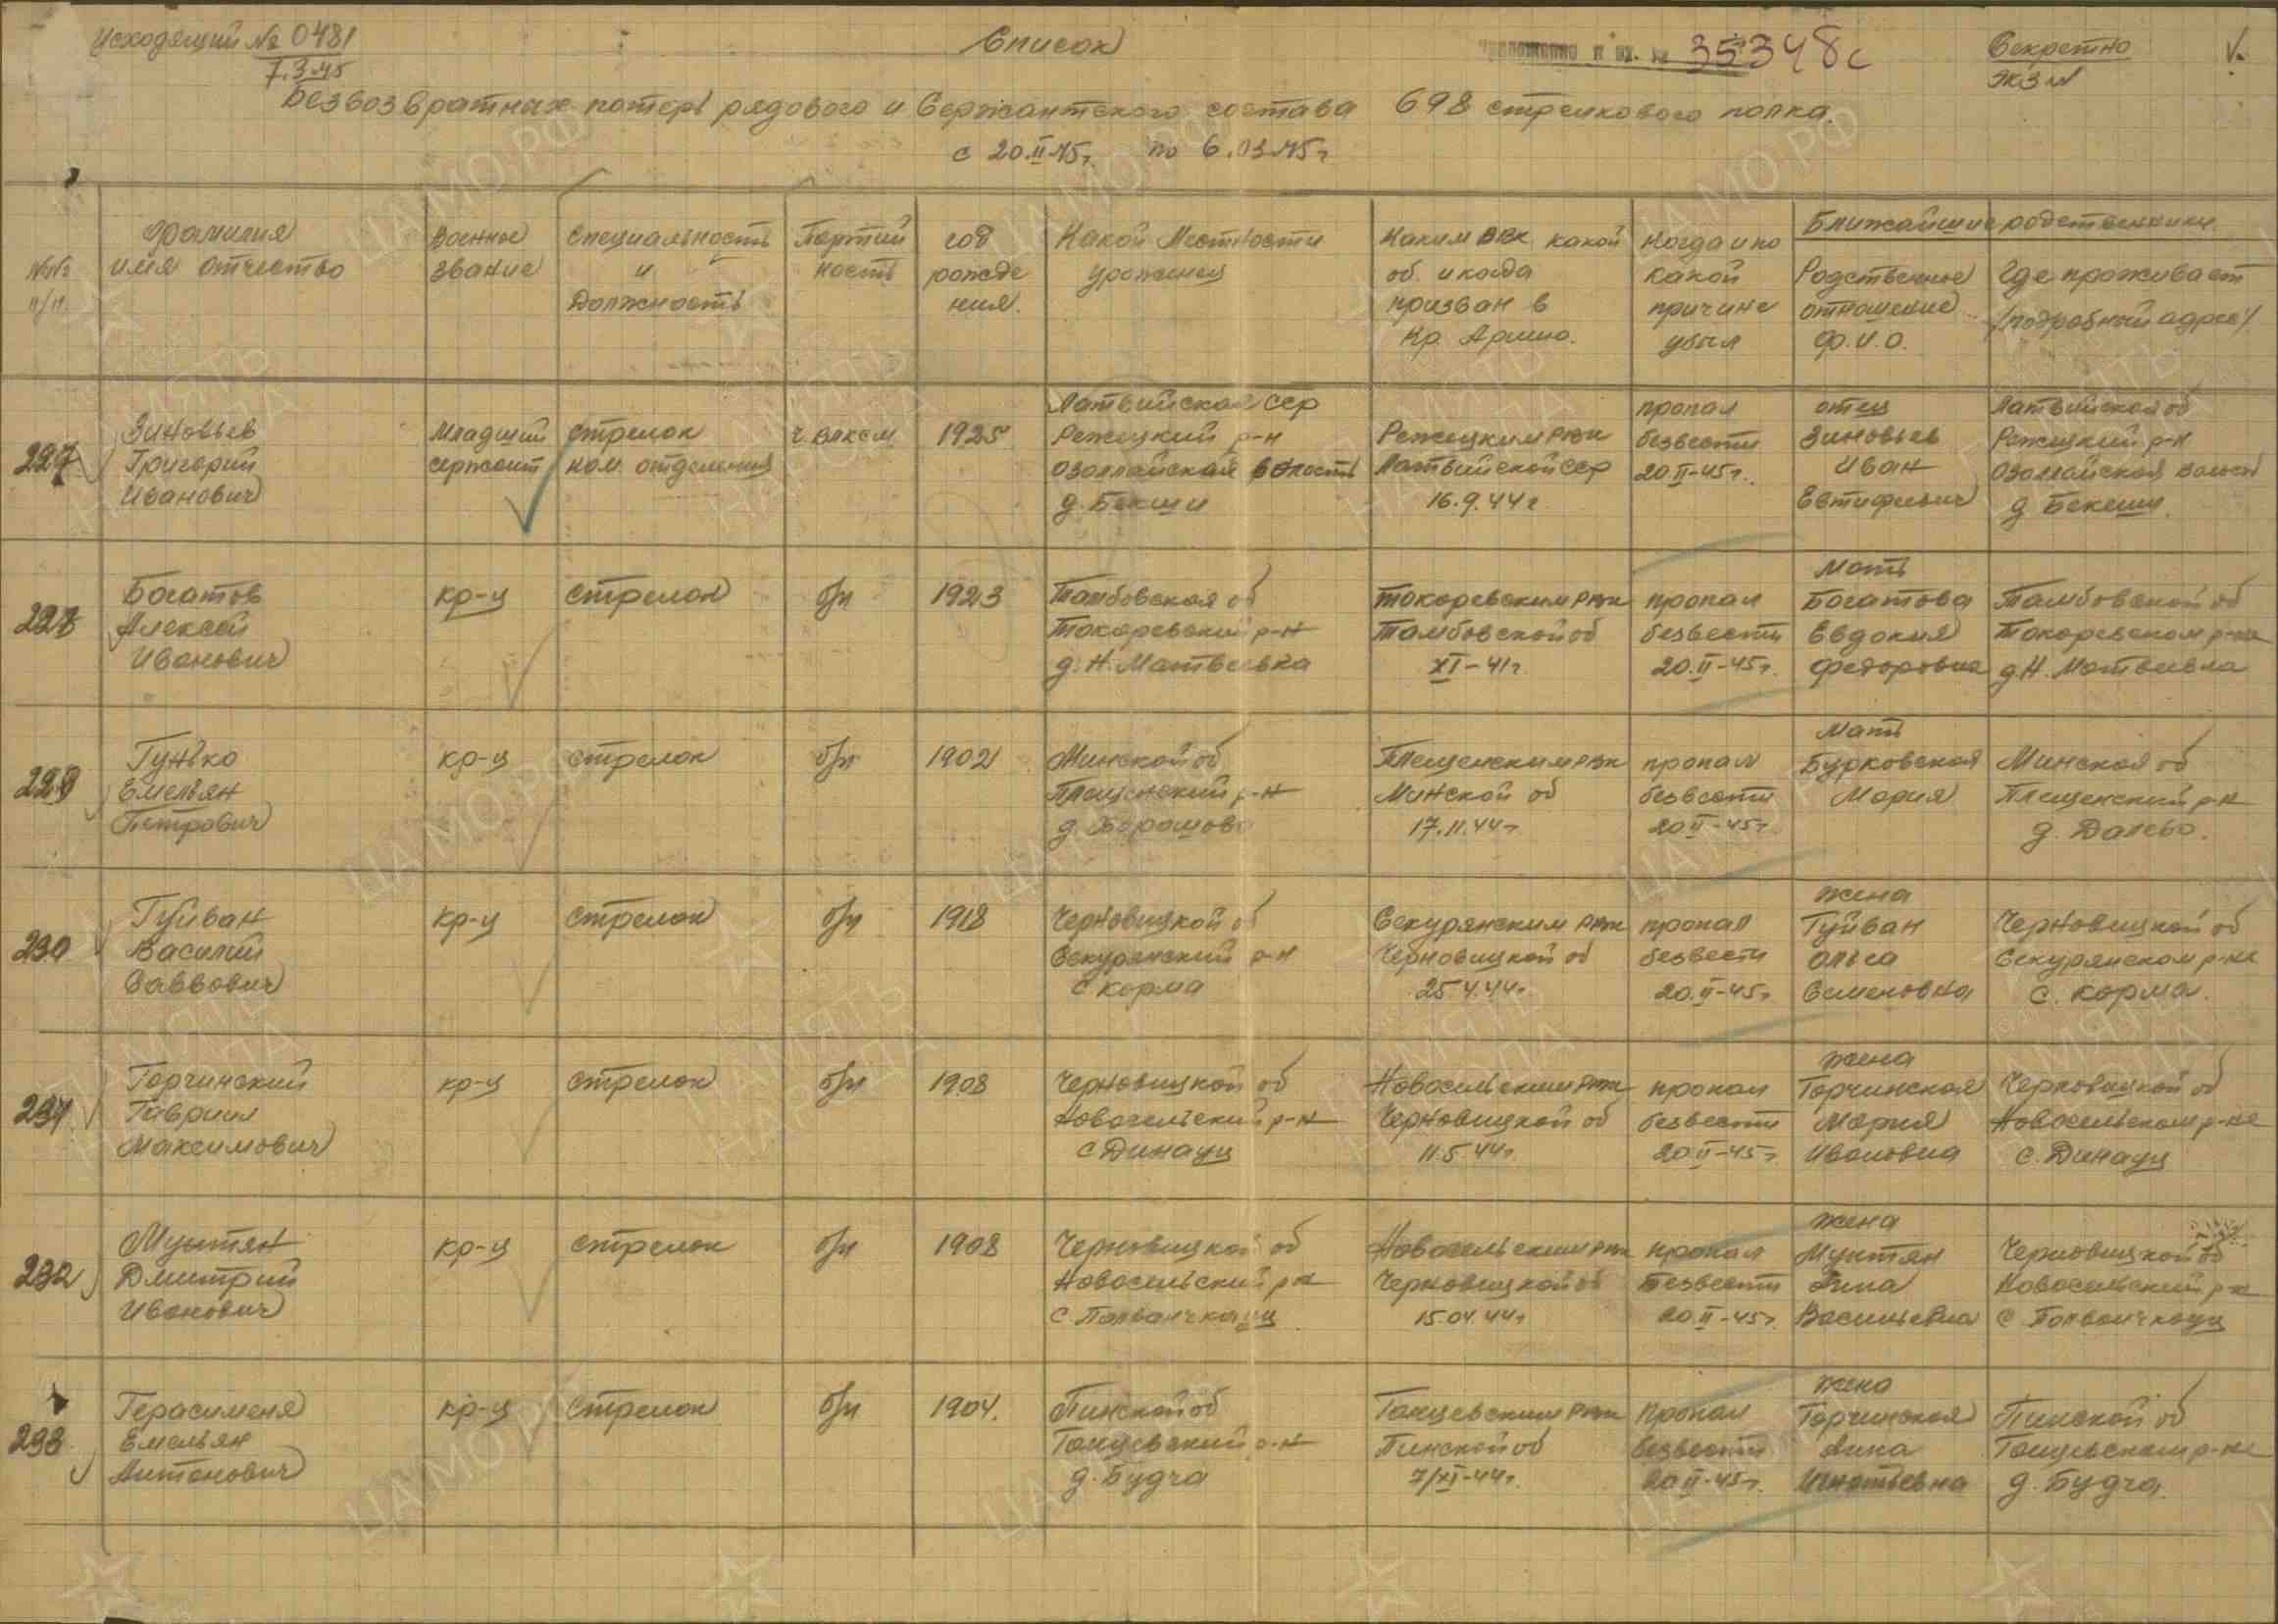 Исходящий № 0481
7.3.45
Список
Приложение к вх. № 35348с
Секретно
экз №
Безвозвратных потерь рядового и Сержантского состава 698 стрелкового полка.
с 20.II-45г. по 6.03.45г
№№ п/п.
Фамилия имя отчество
Военное звание
Специальность и Должность
Партийность
год рождения.
Какой Местности уроженец
Каким ВВК какой об. и когда призван в Кр. Армию.
Когда и по какой причине убыл
Ближайшие родственники
Родственное отношение Ф.И.О.
Где проживает /подробный адрес/
227
Зиновьев
Григорий
Иванович
Младший
сержант
стрелок
ком. отделения
ч. ВЛКСМ
1925
Латвийская ССР
Режецкий р-н
Озоллайская волость
д. Бекши
Режецким РВК
Латвийской ССР
16.9.44г
пропал
безвести
20.II-45г.
отец
Зиновьев
Иван
Евтифьевич
Латвийской об
Режецкий р-н
Озоллайская волость
д. Бекеши.
228
Богатов
Алексей
Иванович
кр-ц
стрелок
б/п
1923
Тамбовская об
Токаревский р-н
д. Н. Матвеевка
Токаревским РВК
Тамбовской об
XI-41г
пропал
безвести
20.II-45г.
Мать
Богатова
Евдокия
Федоровна
Тамбовской об
Токаревском р-не
д. Н. Матвеевка
229
Гунько
Емельян
Петрович
кр-ц
стрелок
б/п
1902
Минской об
Плещенский р-н
д. Борошово
Плещенским РВК
Минской об
17.11.44г
пропал
безвести
20.II-45г.
Мать
Бурковская
Мария
Минская об
Плещенский р-н
д. Далево.
230
Гуйван
Василий
Саввович
кр-ц
стрелок
б/п
1918
Черновицкой об
Секурянский р-н
с корма
Секурянским РВК
Черновицкой об
25 4.44г.
пропал
безвести
20.II-45г
жена
Гуйван
Ольга
Семеновна
Черновицкой об
Секурянском р-не
с. корма.
231
Горчинский
Гавриил
Максимович
кр-ц
стрелок
б/п
1908
Черновицкой об
Новосельский р-н
с Динауц
Новосельским РВК
Черновицкой об
11.5 44г.
пропал
безвести
20.II-45г
жена
Горчинская
Мария
Ивановна
Черновицкой об
Новосельском р-не
с. Динауц
232
Мунтян
Дмитрий
Иванович
кр-ц
стрелок
б/п
1908
Черновицкой об
Новосельский р-н
с. Полванчкауц
Новосельским РВК
Черновицкой об
15.04.44г
пропал
Безвести
20.II-45г.
жена
Мунтян
Анна
Васильевна
Черновицкой об
Новосельский р-н
с Полванчкауц
233
Герасименя
Емельян
Антонович
кр-ц
стрелок
б/п
1904.
Пинской об
Ганцевский р-н
д. Будча
Ганцевским РВК
Пинской об
7/XI-44г.
Пропал
безвести
20 II-45г.
жена
Горчинская
Анна
Игнатьевна
Пинской об
Ганцевском р-не
д. Будча.
ЦА МО РФ
ПАМЯТЬ НАРОДА